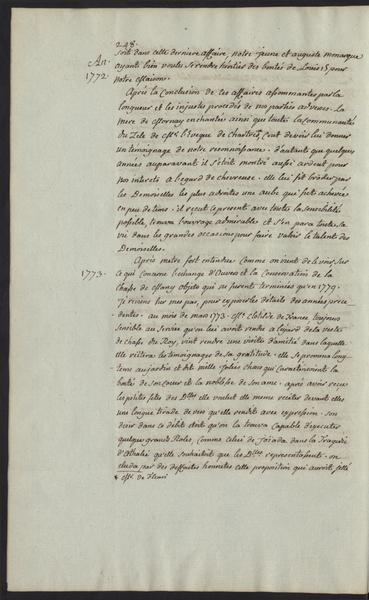 248.
soit dans cette derniere affaire, notre jeune et auguste monarque
An. ayant bien voulu se rendre heritier des bontés de Louis 15 pour
1772. notre maison.
Après la Conclusion de ces affaires assommantes par la
longueur et les injustes procédés de nos parties adverses. La
mere de mornay enchantée ainsi que toute la Communauté
du Zele de Mgr. l'Eveque de Chartres, Crut devoir lui donner
un temoignage de notre reconnoissance. d'autant que quelques
années auparavant il s'étoit montré aussi ardent pour
nos interets a l'egard de chevreuse. elle lui fit broder par
les Demoiselles les plus adroites une aube qui fut achevée
en peu de tems. il reçut ce present avec toute la sensibilité
possible, trouva l'ouvrage admirable et s'en para toutes sa
vie dans les grandes occasions pour faire valoir le talent des
Demoiselles.
Après m'etre fort entendue Comme on vient de le voir, sur
1773. ce qui concerne l'echange d'Ouvres et la Conservation de la
Chasse de magny objets qui ne furent terminés qu'en 1779.
Je reviens sur mes pas, pour y ajouter les détails des années prece-
dentes. au mois de mars 1773. Me. Clotilde de France toujours
sensible au service qu'on lui avoit rendu a l'egard de la veste
de chasse du Roy, vint rendre une visite d'amitié dans laquelle
elle réitera les temoignages de sa gratitude. elle se promena long-
tems au jardin et dit mille jolies choses qui caracterisoient la
bonté de son Coeur et la noblesse de son ame. après avoir reçu
les petites fetes des Dlles elle voulut elle meme reciter devant elles
une longue tirade de vers qu'elle rendit avec expression. son
desir dans ce débit étoit qu'on la trouva Capable d'executer
quelques grands Roles, Comme Celui de Josada dans la Tragedie
d'Athalie qu'elle souhaitoit que les Dlles representassent. on
éluda par des deffaites honnetes cette proposition qui auroit jetté